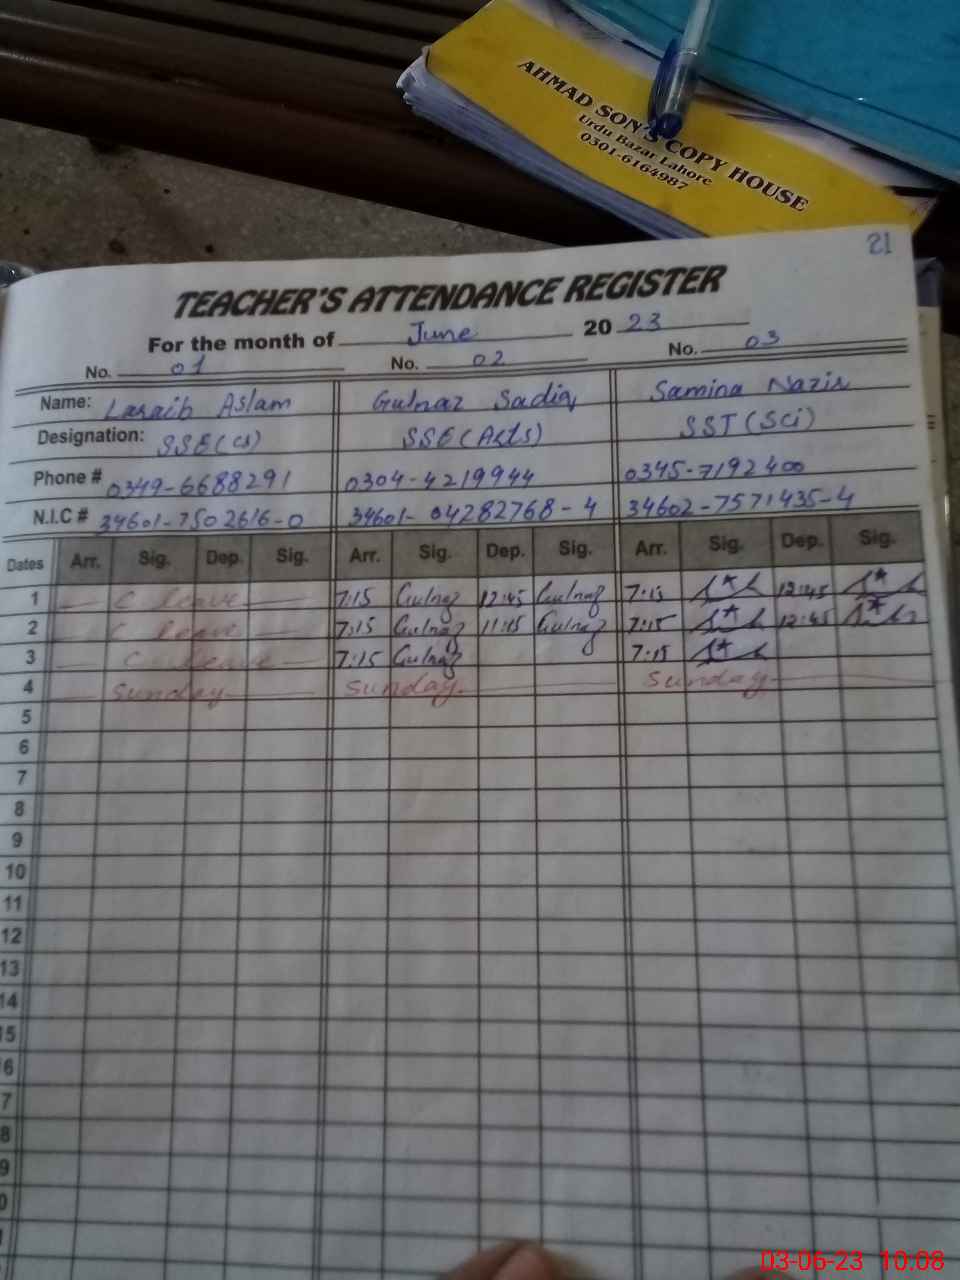 AHMAD SON'S COPY HOUSE
Urdu Bazar Lahore
0301-6164987
21
TEACHER'S ATTENDANCE REGISTER
For the month of June 2023
No. 01 No. 02 No. 03
Name: Laraib Aslam Gulnaz Sadiq Samina Nazir
Designation: SSE(CS) SSE(Arts) SST(Sci)
Phone # 0349-6688291 0304-4219944 0345-7192400
N.I.C # 34601-7502616-0 34601-04282768-4 34602-7571435-4
Dates Arr. Sig. Dep. Sig. Arr. Sig. Dep. Sig. Arr. Sig. Dep. Sig.
1 C leave 7:15 Gulnaz 12:45 Gulnaz 7:15 12:45
2 C leave 7:15 Gulnaz 11:15 Gulnaz 7:15 12:45
3 C leave 7:15 Gulnaz 7:15
4 Sunday Sunday Sunday
5
6
7
8
9
10
11
12
13
14
15
6
7
8
9
0
03-06-23 10:08